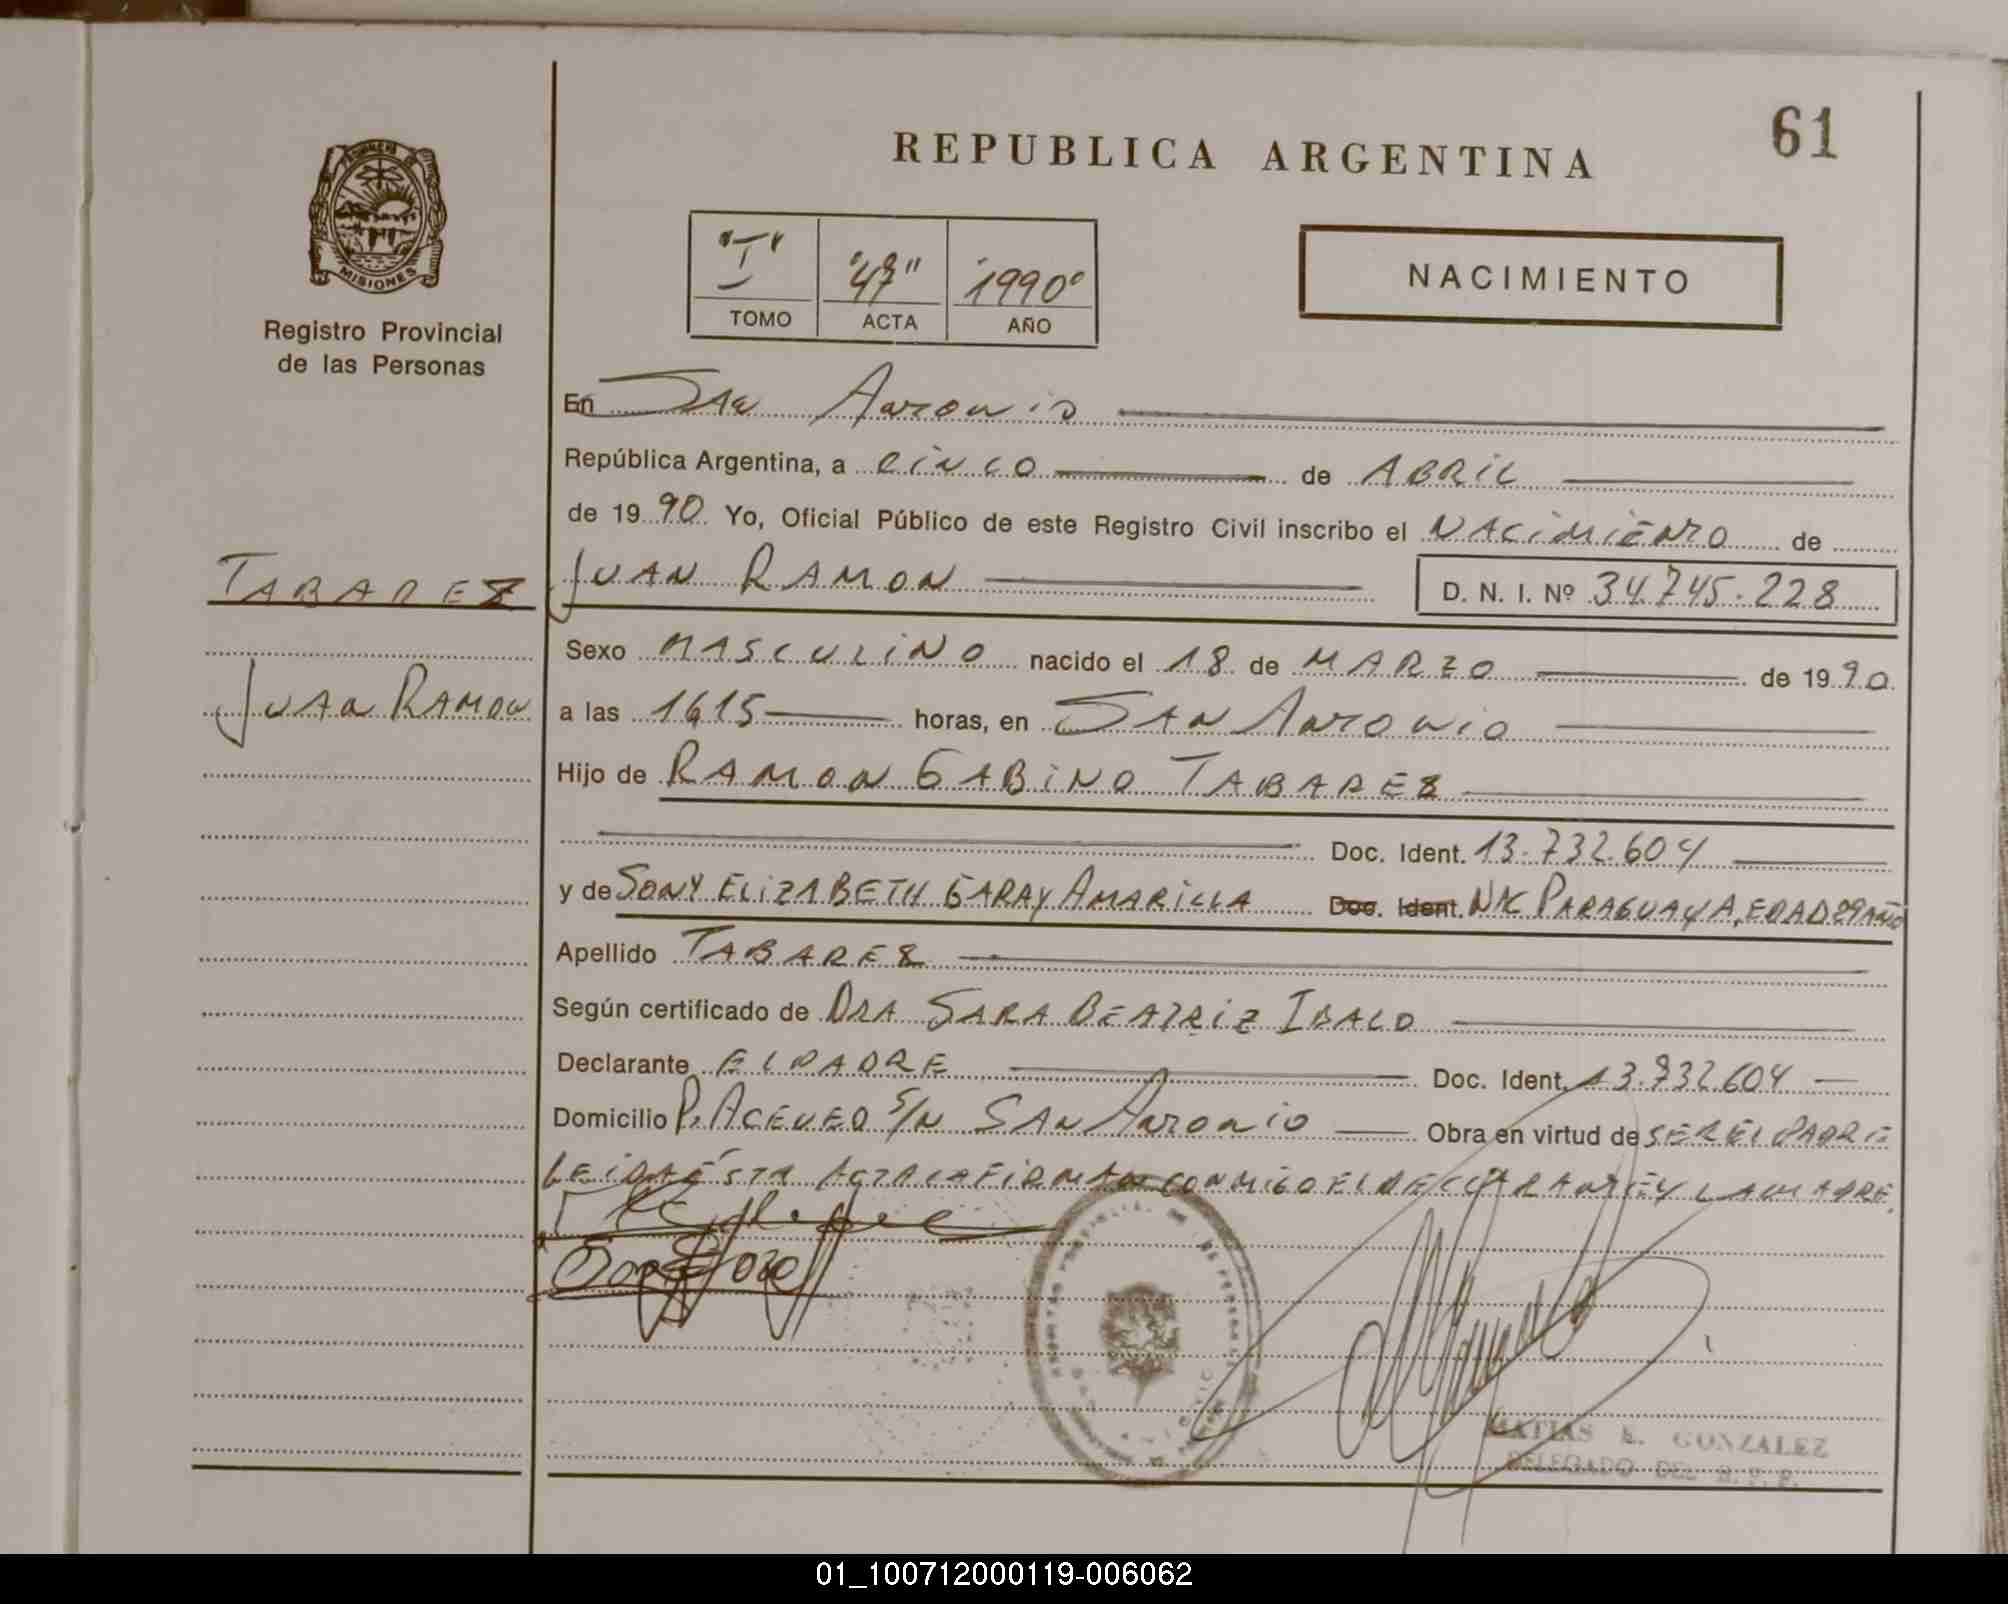 61
REPUBLICA ARGENTINA
"I" "47" "1990"
TOMO ACTA AÑO
NACIMIENTO
MISIONES
Registro Provincial
de las Personas
En San Antonio
República Argentina, a cinco de ABRIL
de 1990. Yo, Oficial Público de este Registro Civil inscribo el NACIMIENTO de
TABAREZ
JUAN RAMON D. N. I. Nº 34.745.228
Sexo MASCULINO nacido el 18 de MARZO de 1990
JUAN RAMON
a las 1615 horas, en SAN ANTONIO
Hijo de RAMON GABINO TABAREZ
Doc. Ident. 13.732.604
y de SONY ELIZABETH GARAY AMARILLA Doc. Ident. NAC PARAGUAYA, EDAD 29 AÑO
Apellido TABAREZ
Según certificado de DRA SARA BEATRIZ IBALO
Declarante EL PADRE Doc. Ident. 13.732.604
Domicilio P. ACEVEDO S/N SAN ANTONIO Obra en virtud de SER EL PADRE
LEIDA ESTA ACTA LA FIRMAN CONMIGO EL DECLARANTE Y LA MADRE.
MATIAS E. GONZALEZ
DELEGADO DEL R. P. P.
01_100712000119-006062